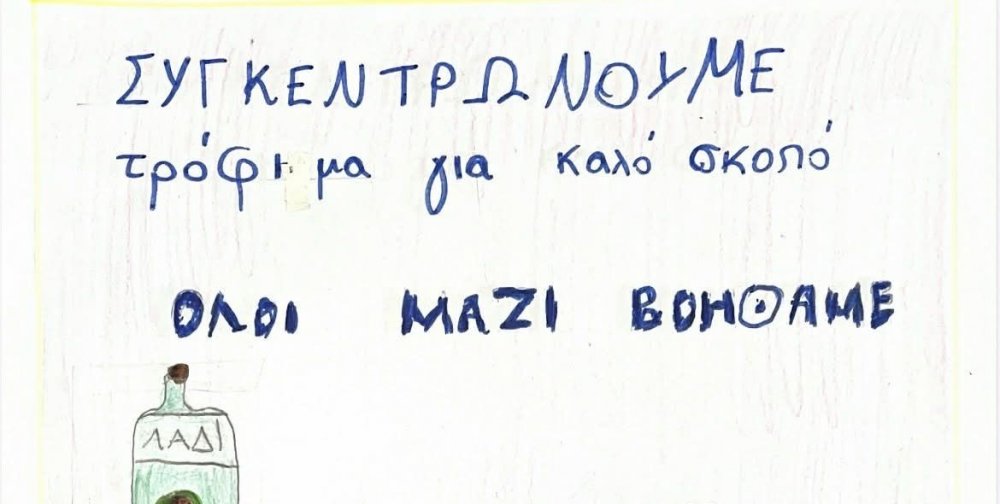 ΣΥΓΚΕΝΤΡΩΝΟΥΜΕ
τρόφιμα για καλό σκοπό
ΟΛΟΙ ΜΑΖΙ ΒΟΗΘΑΜΕ
ΛΑΔΙ